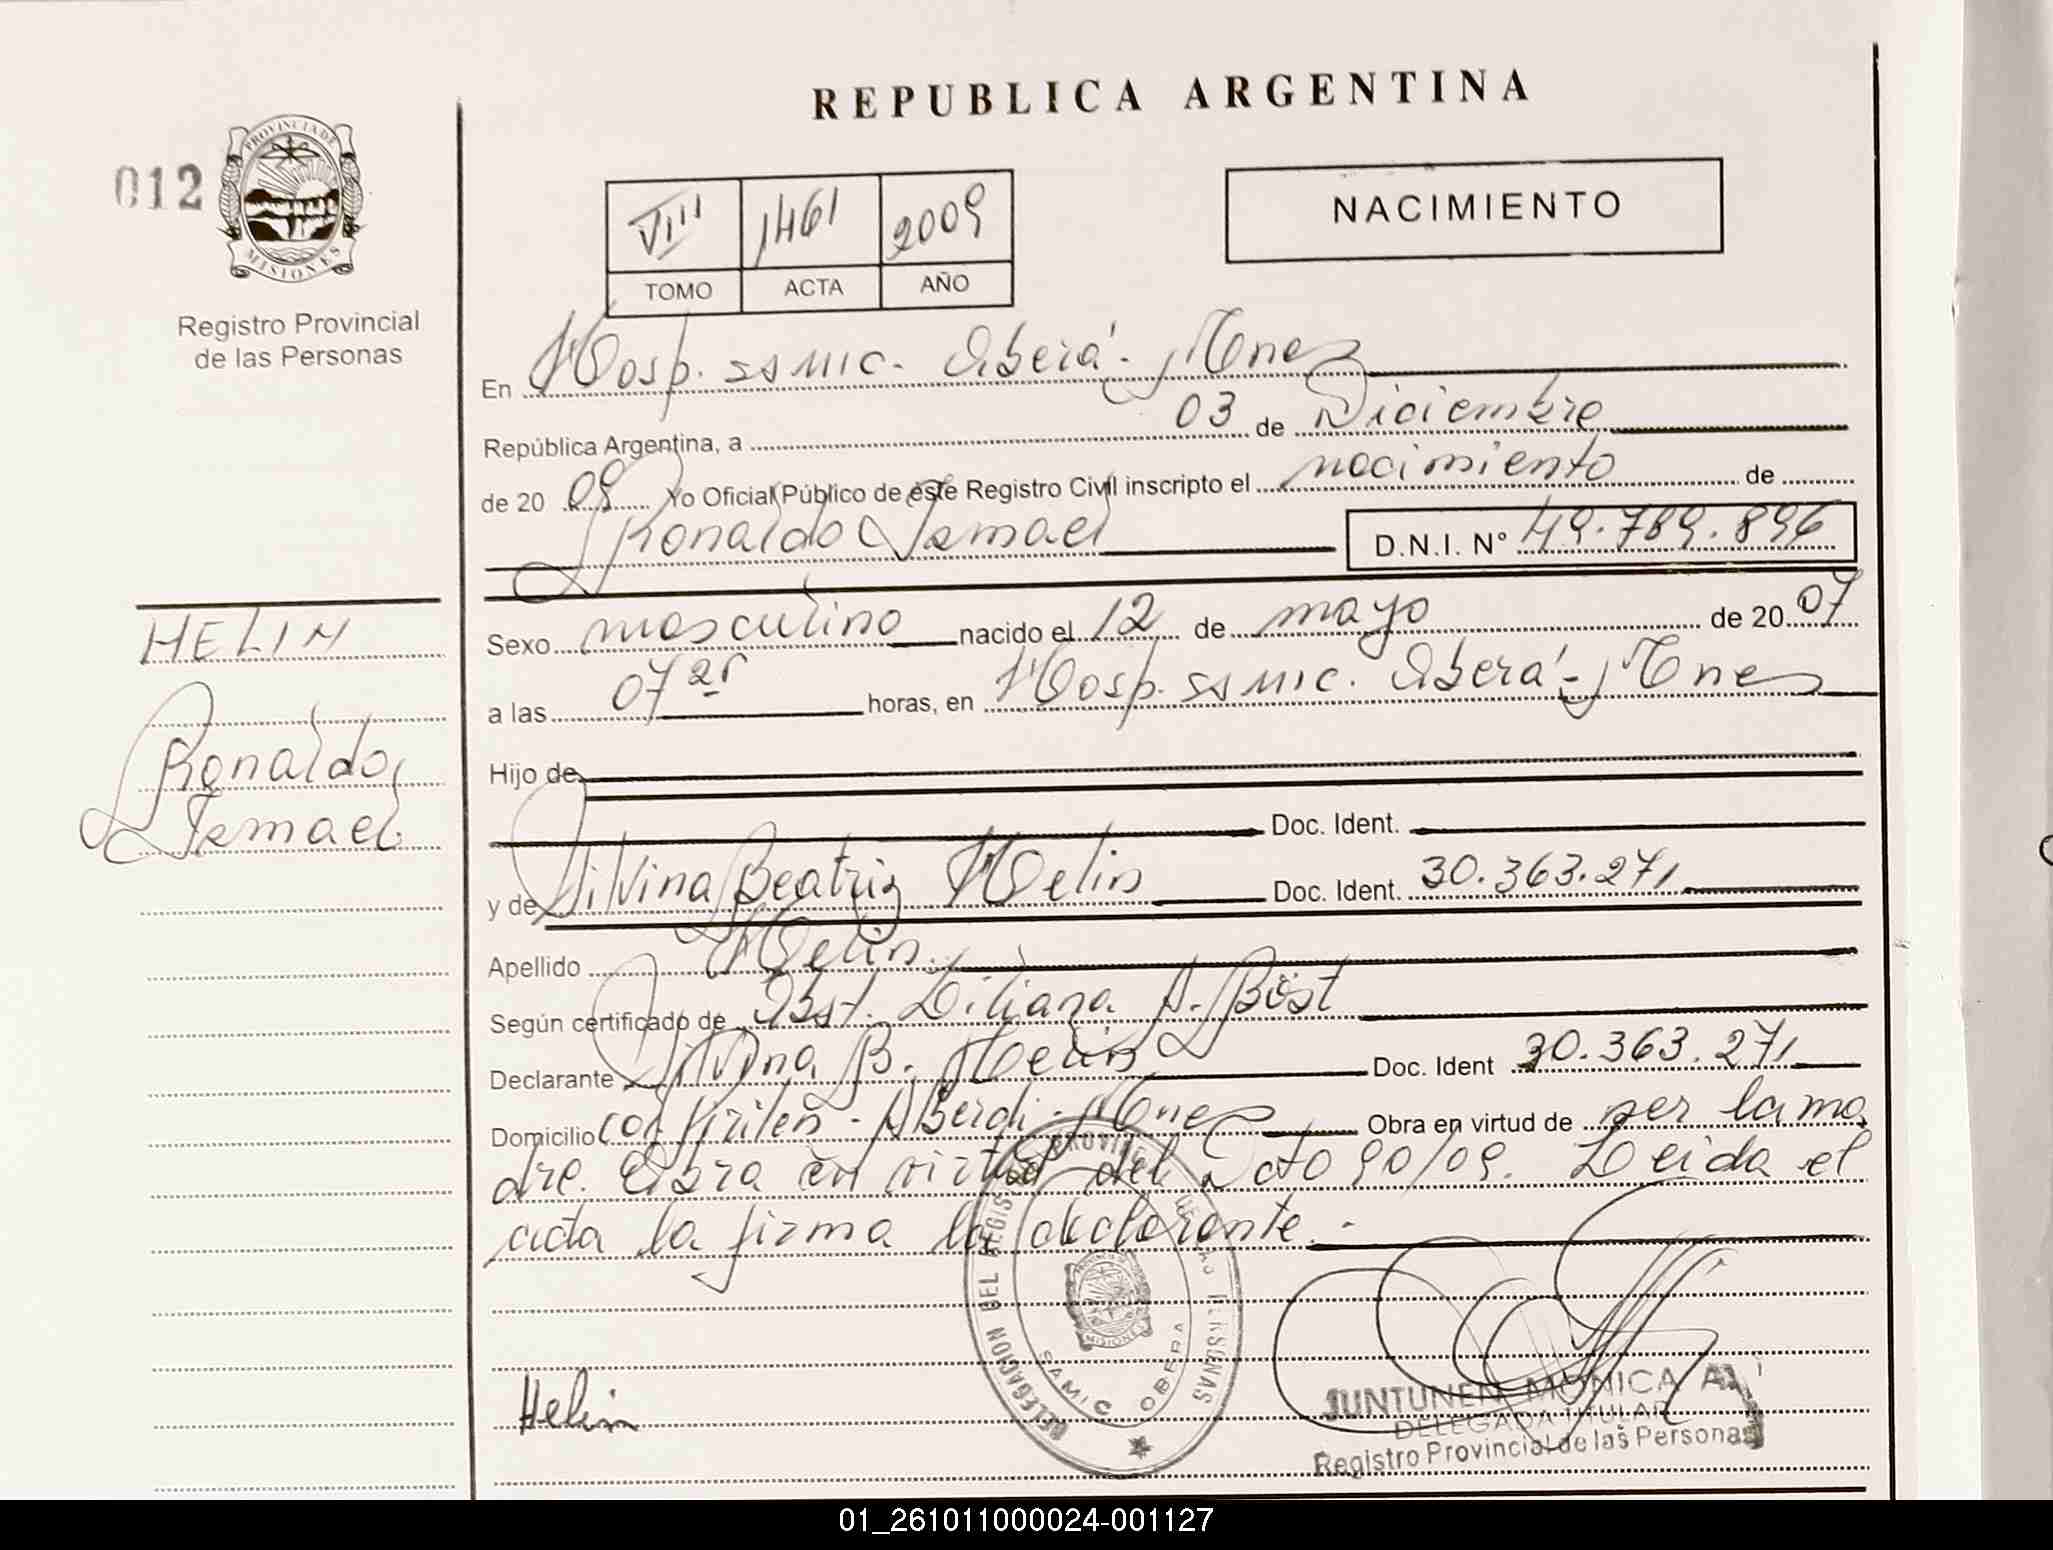 REPUBLICA ARGENTINA
012
PROVINCIA DE
MISIONES
Registro Provincial
de las Personas
NACIMIENTO
VIII 1461 2009
TOMO ACTA AÑO
En Hosp. SAMIC. Oberá - Mnes
República Argentina, a 03 de Diciembre
de 20 09 Yo Oficial Público de este Registro Civil inscripto el nacimiento de
Ronaldo Ismael D.N.I. N° 49.789.896
HELIN
Ronaldo
Ismael
Sexo masculino nacido el 12 de mayo de 20 07
a las 07 horas, en Hosp. SAMIC. Oberá - Mnes
Hijo de
Doc. Ident.
y de Silvina Beatriz Helin Doc. Ident. 30.363.271
Apellido Helin
Según certificado de Obst. Liliana A. Böst
Declarante Silvina B. Helin Doc. Ident 30.363.271
Domicilio Alberdi - Mnes Obra en virtud de per la ma
dre. Obra en virtud del Dto 90/09. Leida el
acta la firma la declarante.-
DELEGACION DEL REGISTRO PROVINCIAL DE LAS PERSONAS
MISIONES
SAMIC OBERA
Helin
JUNTUNEN MONICA A.
DELEGADA TITULAR
Registro Provincial de las Personas
01_261011000024-001127